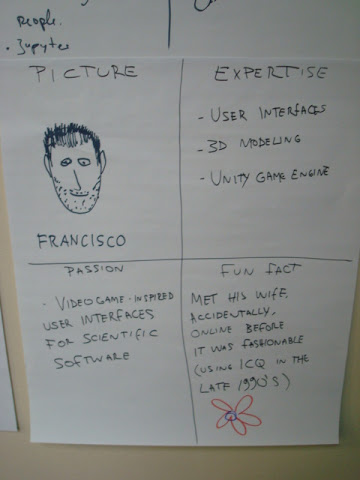 people.
• Jupyter
PICTURE
FRANCISCO
EXPERTISE
- USER INTERFACES
- 3D MODELING
- UNITY GAME ENGINE
PASSION
- VIDEOGAME-INSPIRED
USER INTERFACES
FOR SCIENTIFIC
SOFTWARE
FUN FACT
MET HIS WIFE,
ACCIDENTALLY,
ONLINE BEFORE
IT WAS FASHIONABLE
(USING ICQ IN THE
LATE 1990'S)